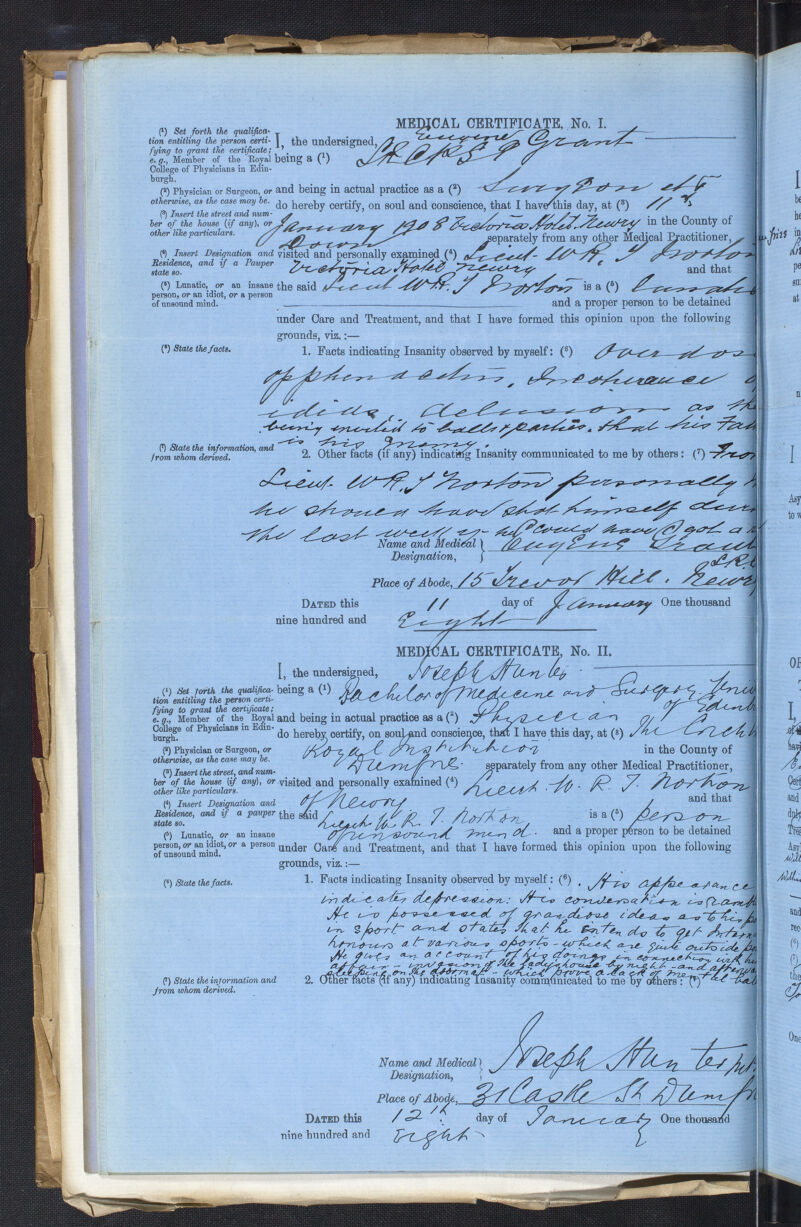 MEDICAL CERTIFICATE, No. I.
(¹) Set forth the qualifica-
tion entitling the person certi-
fying to grant the certificate;
e.g., Member of the Royal
College of Physicians in Edin-
burgh.
(²) Physician or Surgeon, or
otherwise, as the case may be.
(³) Insert the street and num-
ber of the house (if any), or
other like particulars.
(⁴) Insert Designation and
Residence, and if a Pauper
state so.
(⁵) Lunatic, or an insane
person, or an idiot, or a person
of unsound mind.
I, the undersigned, Eugene Grant
being a (¹)
and being in actual practice as a (²) Surgeon
do hereby certify, on soul and conscience, that I have this day, at (³) 11th
January 1908 Victoria Hotel Newry in the County of
Down separately from any other Medical Practitioner,
visited and personally examined (⁴) Lieut. W R. T Norton
Victoria Hotel Newry and that
the said Lieut W R. T Norton is a (⁵)
and a proper person to be detained
under Care and Treatment, and that I have formed this opinion upon the following
grounds, viz.:—
(⁶) State the facts.
1. Facts indicating Insanity observed by myself: (⁶) Over dose
of phenacetin, Incoherence
delusions as
being invited to balls & parties. that his
is his Enemy.
(⁷) State the information, and
from whom derived.
2. Other facts (if any) indicating Insanity communicated to me by others: (⁷) From
Lieut. W R. T Norton personally
he should have shot himself
the last week if he could have got a
Name and Medical Designation, Eugene Grant
Place of Abode, 15 Trevor Hill. Newry
DATED this 11 day of January One thousand
nine hundred and Eight
MEDICAL CERTIFICATE, No. II.
(¹) Set forth the qualifica-
tion entitling the person certi-
fying to grant the certificate;
e.g., Member of the Royal
College of Physicians in Edin-
burgh.
(²) Physician or Surgeon, or
otherwise, as the case may be.
(³) Insert the street, and num-
ber of the house (if any), or
other like particulars.
(⁴) Insert Designation and
Residence, and if a pauper
state so.
(⁵) Lunatic, or an insane
person, or an idiot, or a person
of unsound mind.
I, the undersigned, Joseph Hunter
being a (¹) Bachelor of Medicine and Surgery
of
and being in actual practice as a (²) Physician
do hereby certify, on soul and conscience, that I have this day, at (³) The
Royal Institution in the County of
Dumfries separately from any other Medical Practitioner,
visited and personally examined (⁴) Lieut. W. R. T. Norton
of Newry and that
the said Lieut W. R. T. Norton is a (⁵) person
of unsound mind. and a proper person to be detained
under Care and Treatment, and that I have formed this opinion upon the following
grounds, viz.:—
(⁶) State the facts.
1. Facts indicating Insanity observed by myself: (⁶) His appearance
indicates depression: His conversation is
He is possessed of grandiose ideas as to his
in sport and states that he intends to get
honours at various sports - which are quite outside
He gives an account of his doings in connection with
affair - invasion of the lady's house by night - and
sleeping on the doormat - which prove a lack of mental
(⁷) State the information and
from whom derived.
2. Other facts (if any) indicating Insanity communicated to me by others: (⁷)
Name and Medical Designation, Joseph Hunter
Place of Abode, 31 Castle St
DATED this 12th day of January One thousand
nine hundred and Eight